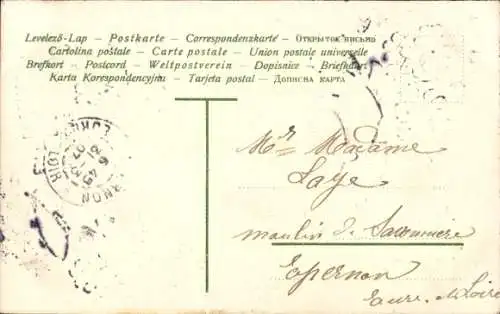 Levelező-Lap — Postkarte — Correspondenzkarté — Открытое письмо
Cartolina poštale — Carte postale — Union postale universelle
Brefkort — Postcord — Weltpostverein — Dopisnice — Briefkaart
Karta Korespondencyjna — Tarjeta postal — Дописна карта
Mr Madame
Laye
moulin de Savonniere
Epernon
Eure-et-Loire